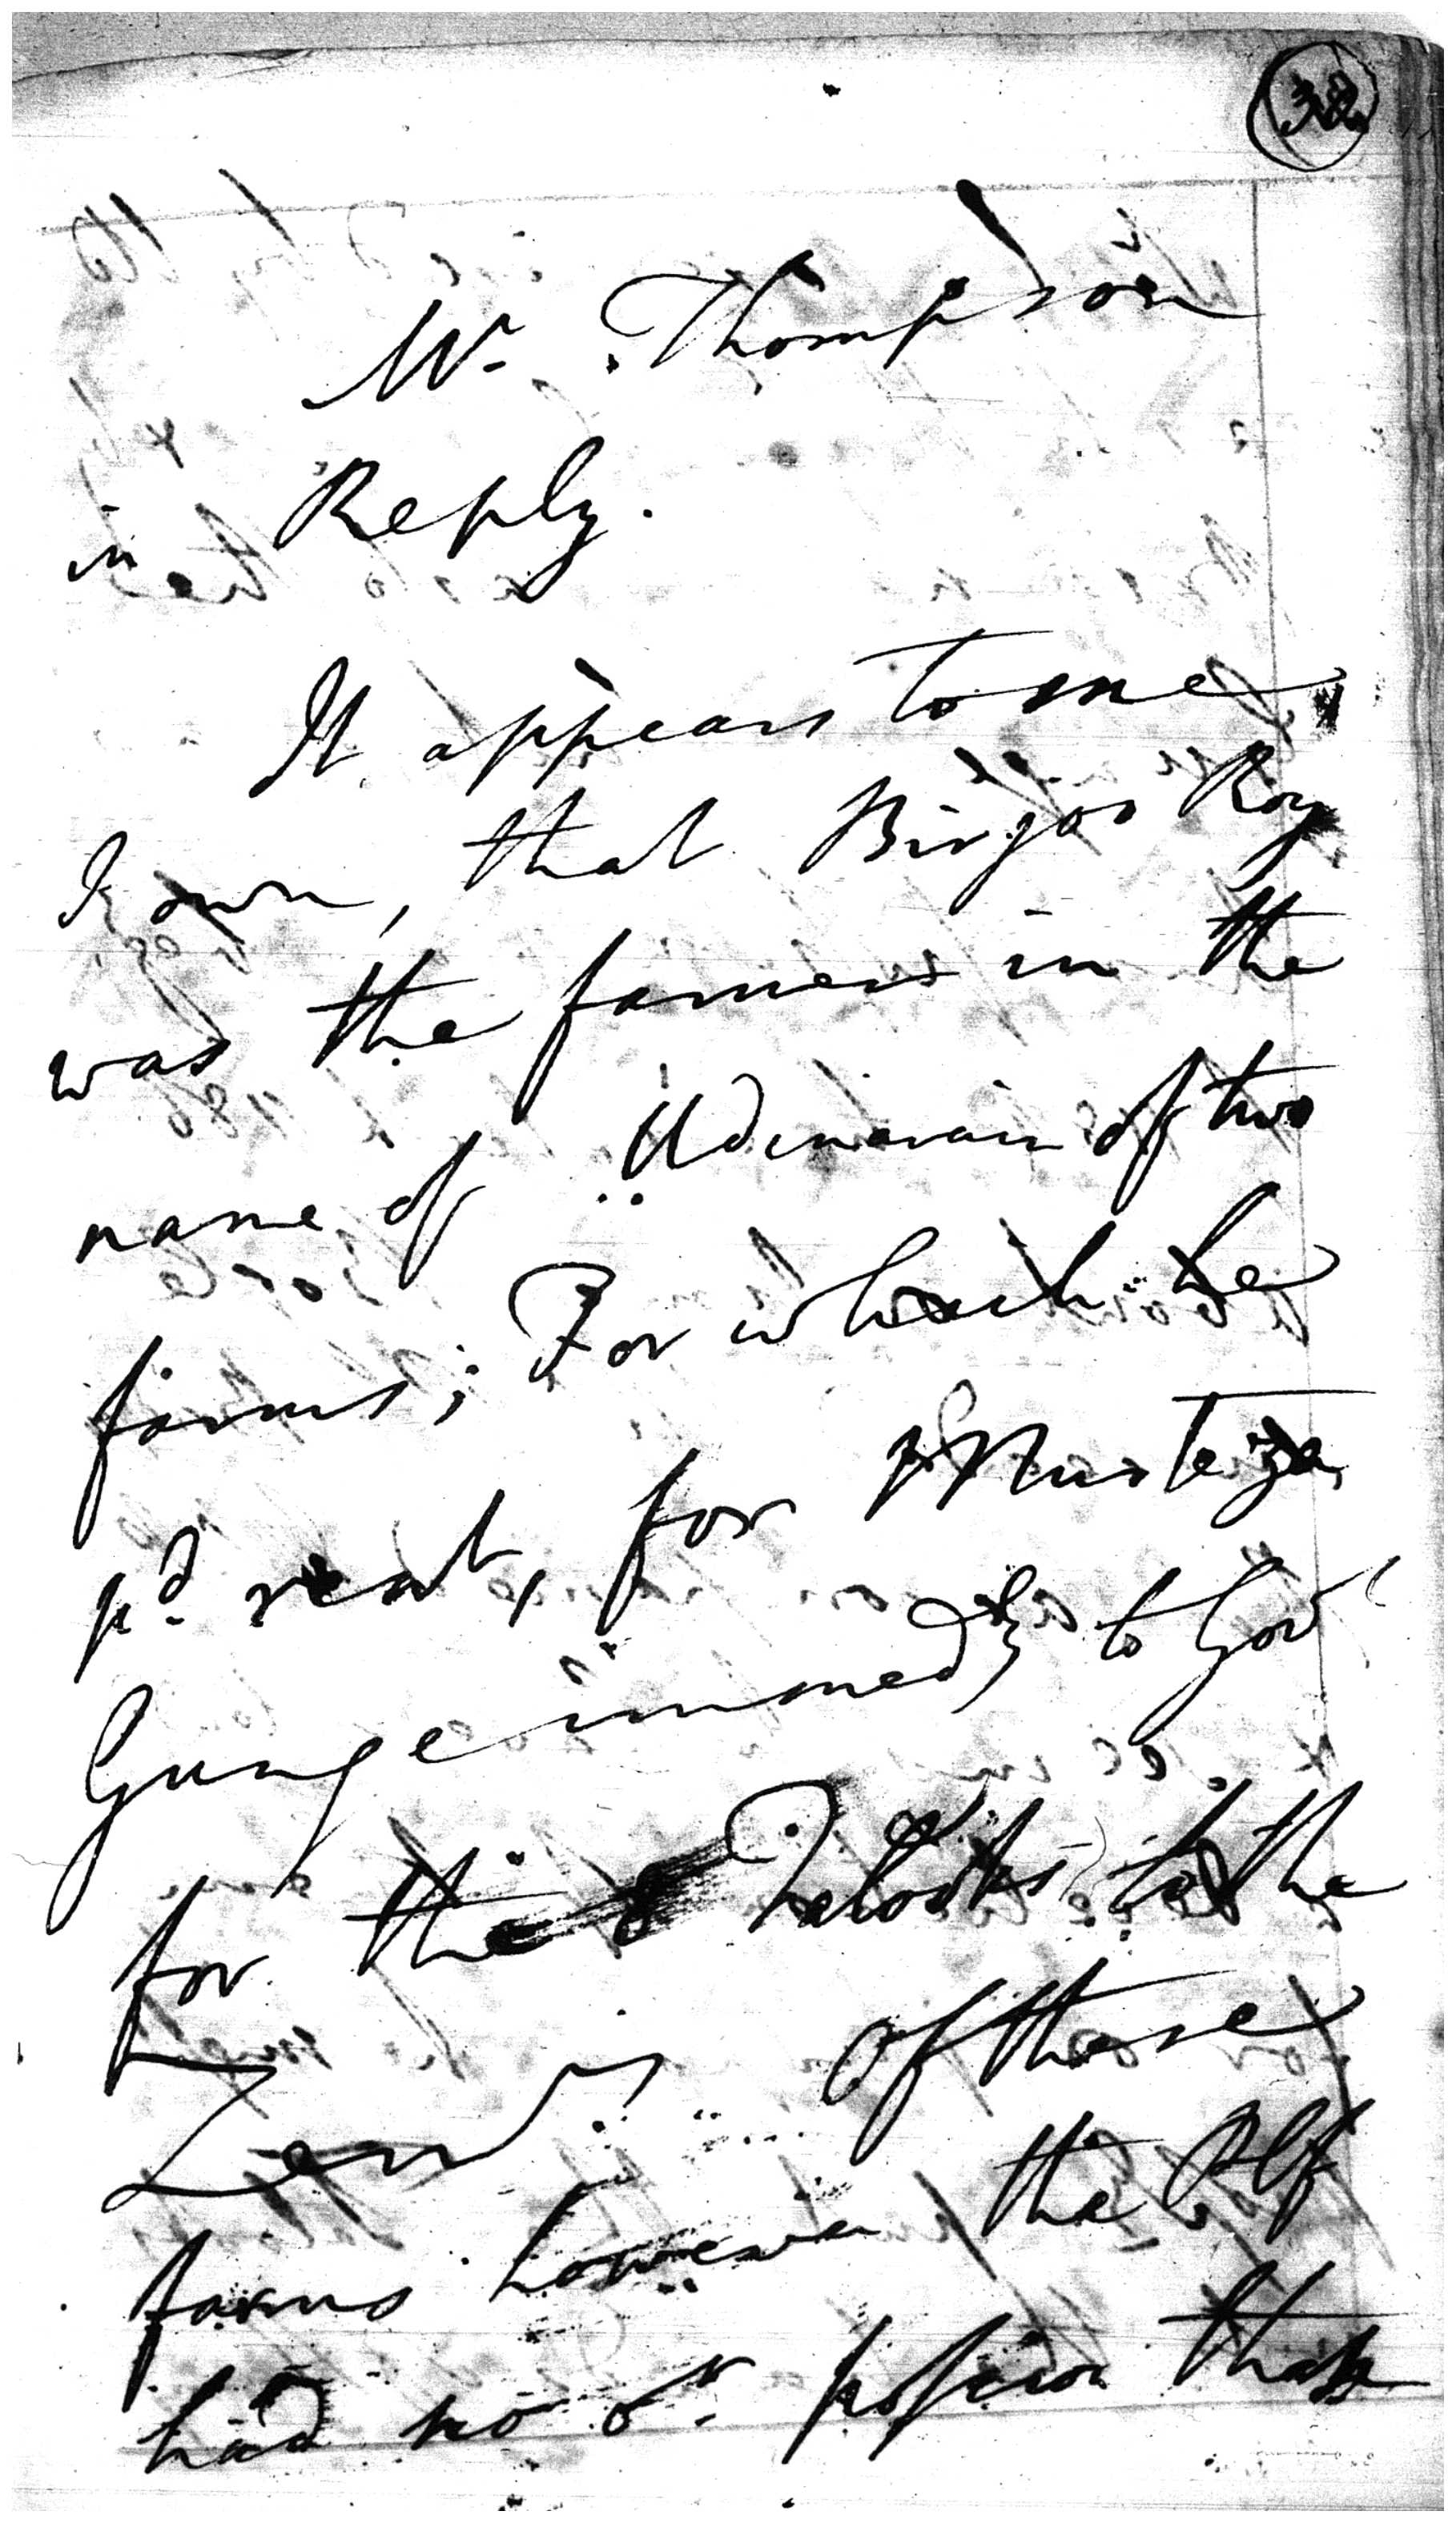 32
Mr. Thompson
in Reply.
It appears to me
I own, that Birjoo Roy
was the farmer in the
name of Udinarain of two
farms; For which he
pd. rent, for Murteza
Gunge immedy to Govt
for the Talooks to the
Zemrs. Of these
farms however the Plf
had no or. possion than